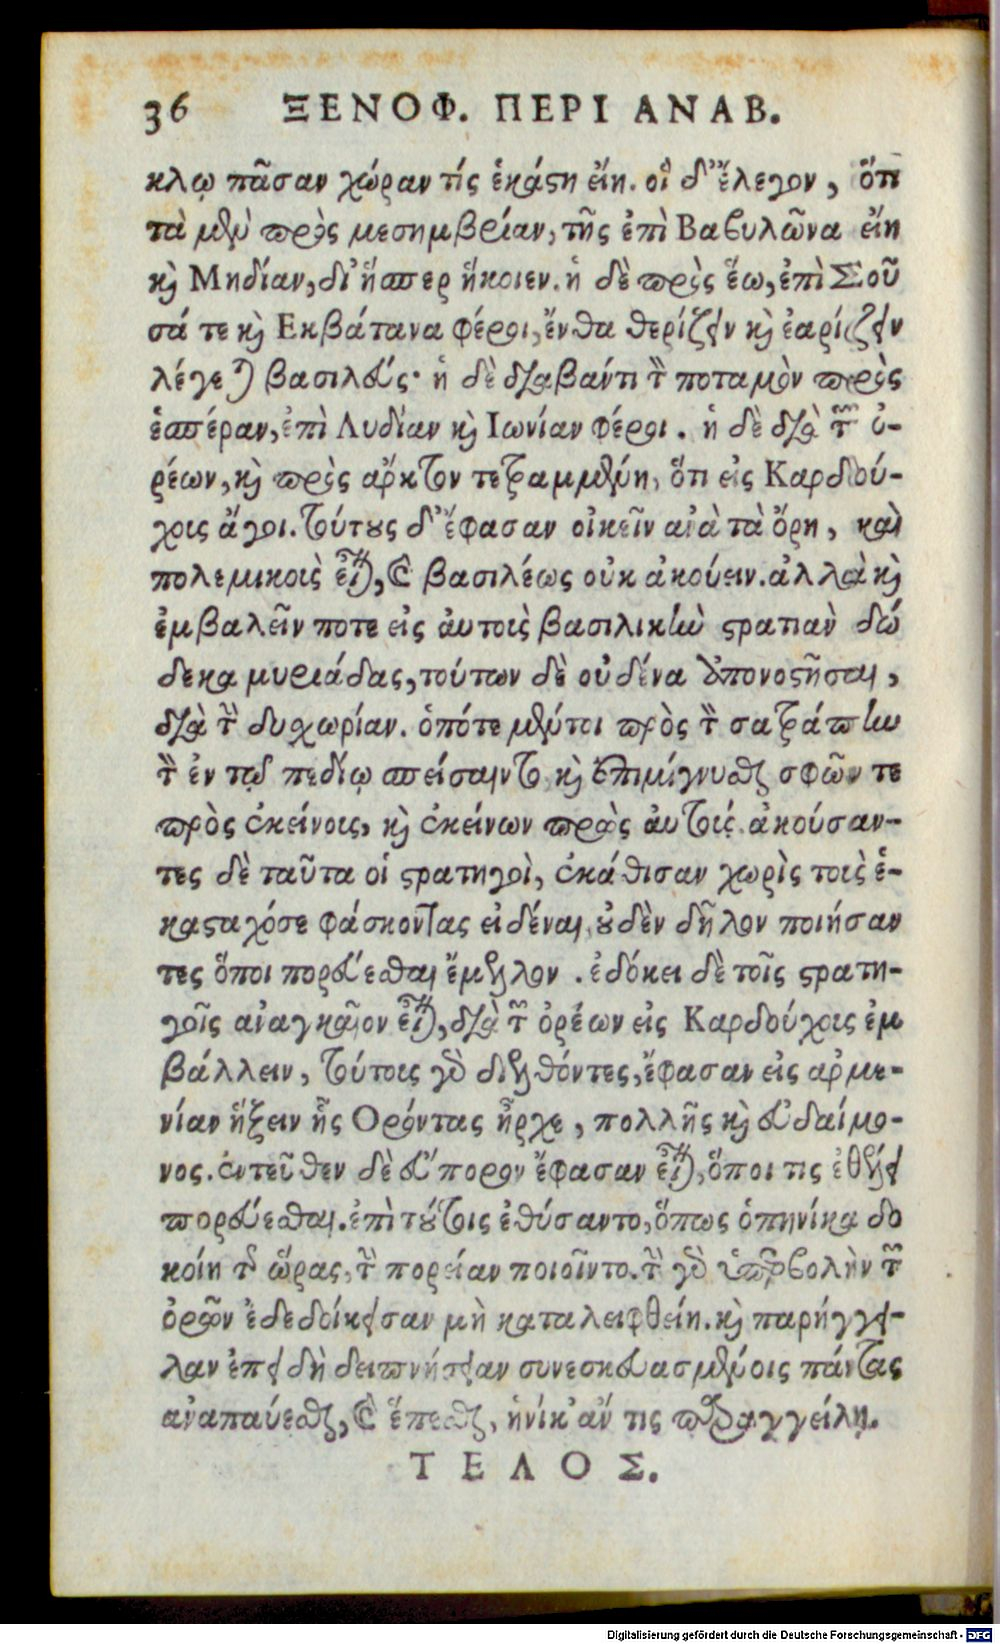 36 ΞΕΝΟΦ. ΠΕΡΙ ΑΝΑΒ.
κλῳ πᾶσαν χώραν τίς ἑκάστη εἴη. οἱ δ' ἔλεγον, ὅτι
τὰ μὲν πρὸς μεσημβρίαν, τῆς ἐπὶ Βαβυλῶνα εἴη
καὶ Μηδίαν, δι' ἧσπερ ἥκοιεν. ἡ δὲ πρὸς ἕω, ἐπὶ Σοῦ
σά τε καὶ Εκβάτανα φέροι, ἔνθα θερίζειν καὶ ἐαρίζειν
λέγεται βασιλεύς· ἡ δὲ διαβάντι τὸν ποταμὸν πρὸς
ἑσπέραν, ἐπὶ Λυδίαν καὶ Ιωνίαν φέροι. ἡ δὲ διὰ τῶν ὀ-
ρέων, καὶ πρὸς ἄρκτον τετραμμένη, ὅτι εἰς Καρδού-
χοις ἄγοι. τούτους δ' ἔφασαν οἰκεῖν ἀνὰ τὰ ὄρη, καὶ
πολεμικοὺς εἶναι, καὶ βασιλέως οὐκ ἀκούειν. ἀλλὰ καὶ
ἐμβαλεῖν ποτε εἰς αὐτοὺς βασιλικὴν στρατιὰν δώ
δεκα μυριάδας, τούτων δὲ οὐδένα ἀπονοστῆσαι,
διὰ τὴν δυσχωρίαν. ὁπότε μέντοι πρὸς τὸν σατράπην
τὸν ἐν τῷ πεδίῳ σπείσαιντο καὶ ἐπιμίγνυσθαι σφῶν τε
πρὸς ἐκείνοις, καὶ ἐκείνων πρὸς αὐτούς. ἀκούσαν-
τες δὲ ταῦτα οἱ στρατηγοὶ, ἐκάθισαν χωρὶς τοὺς ἑ-
κασταχόσε φάσκοντας εἰδέναι, οὐδὲν δῆλον ποιήσαν
τες ὅποι πορεύεσθαι ἔμελλον. ἐδόκει δὲ τοῖς στρατη-
γοῖς ἀναγκαῖον εἶναι, διὰ τῶν ὀρέων εἰς Καρδούχοις ἐμ
βάλλειν, τούτοις γὰρ διελθόντες, ἔφασαν εἰς αρμε-
νίαν ἥξειν ἧς Ορόντας ἦρχε, πολλῆς καὶ εὐδαίμο-
νος. ἐντεῦθεν δὲ εὔπορον ἔφασαν εἶναι, ὅποι τις ἐθέλει
πορεύεσθαι. ἐπὶ τούτοις ἐθύσαντο, ὅπως ὁπηνίκα δο
κοίη τῆς ὥρας, τὴν πορείαν ποιοῖντο. τὴν γὰρ ὑπερβολὴν τῶν
ὀρῶν ἐδεδοίκεισαν μὴ καταλειφθείη. καὶ παρήγγει-
λαν ἐπειδὴ δειπνήσειαν συνεσκευασμένοις πάντας
ἀναπαύεσθαι, καὶ ἕπεσθαι, ἡνίκ' ἄν τις παραγγείλῃ.
ΤΕΛΟΣ.
Digitalisierung gefördert durch die Deutsche Forschungsgemeinschaft - DFG